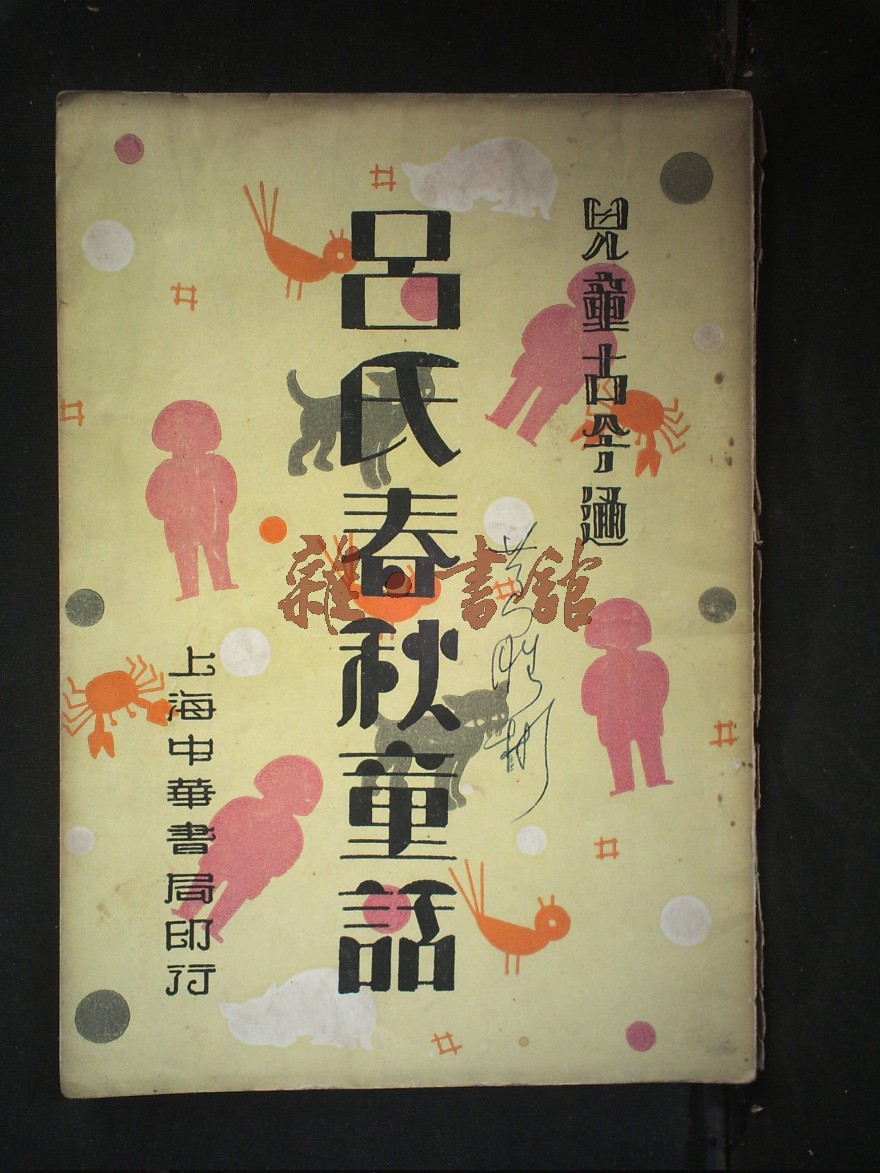 兒童古今通
呂氏春秋童話
上海中華書局印行
雜·書館